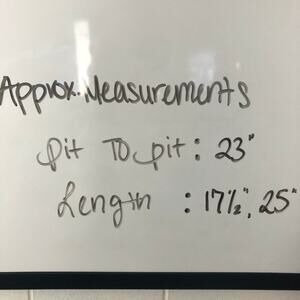 Approx. Measurements
pit To pit : 23"
Length : 17½", 25"